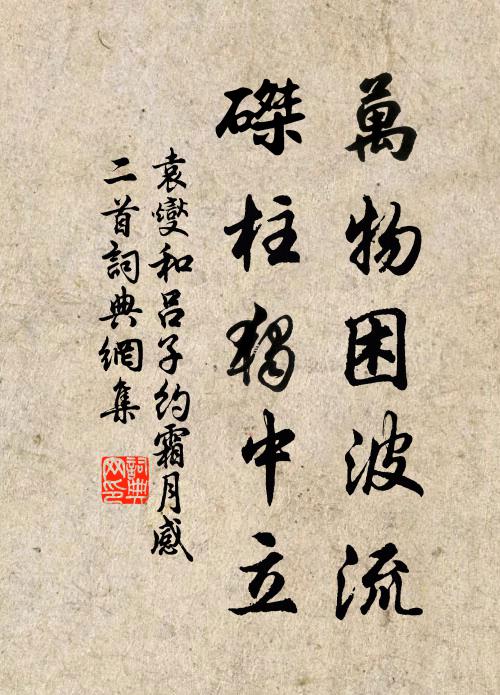 萬物困波流
磔柱獨中立
袁燮和呂子約霜月感
二首詞典網集
詞典网印